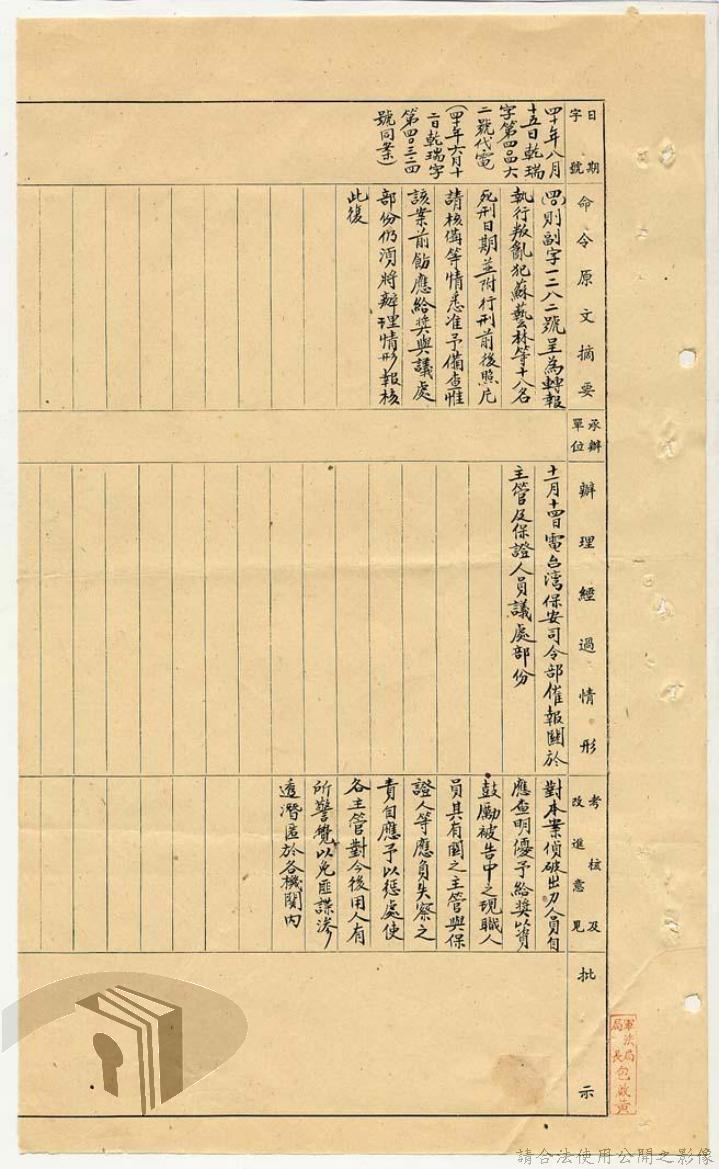 日期
字號
命令原文摘要
承辦
單位
辦理經過情形
考核及
改進意見
批示
四十年八月
十五日乾瑞
字第四品六
二號代電
(四十年六月十
二日乾瑞字
第四〇三二四
號同案)
(四)則副字一二八二號呈為轉報
執行叛亂犯蘇藝林等十八名
死刑日期並附行刑前後照片
請核備等情悉准予備查惟
該案前飭應給獎與議處
部份仍須將辦理情形報核
此復
十一月十四日電台灣保安司令部催報關於
主管及保證人員議處部份
對本案偵破出力人員自
應查明優予給獎以資
鼓勵被告中之現職人
員其有關之主管與保
證人等應負失察之
責自應予以懲處使
各主管對今後用人有
所警覺以免匪諜滲
透潛匿於各機關內
軍法局
局長包啟黃
請合法使用公開之影像